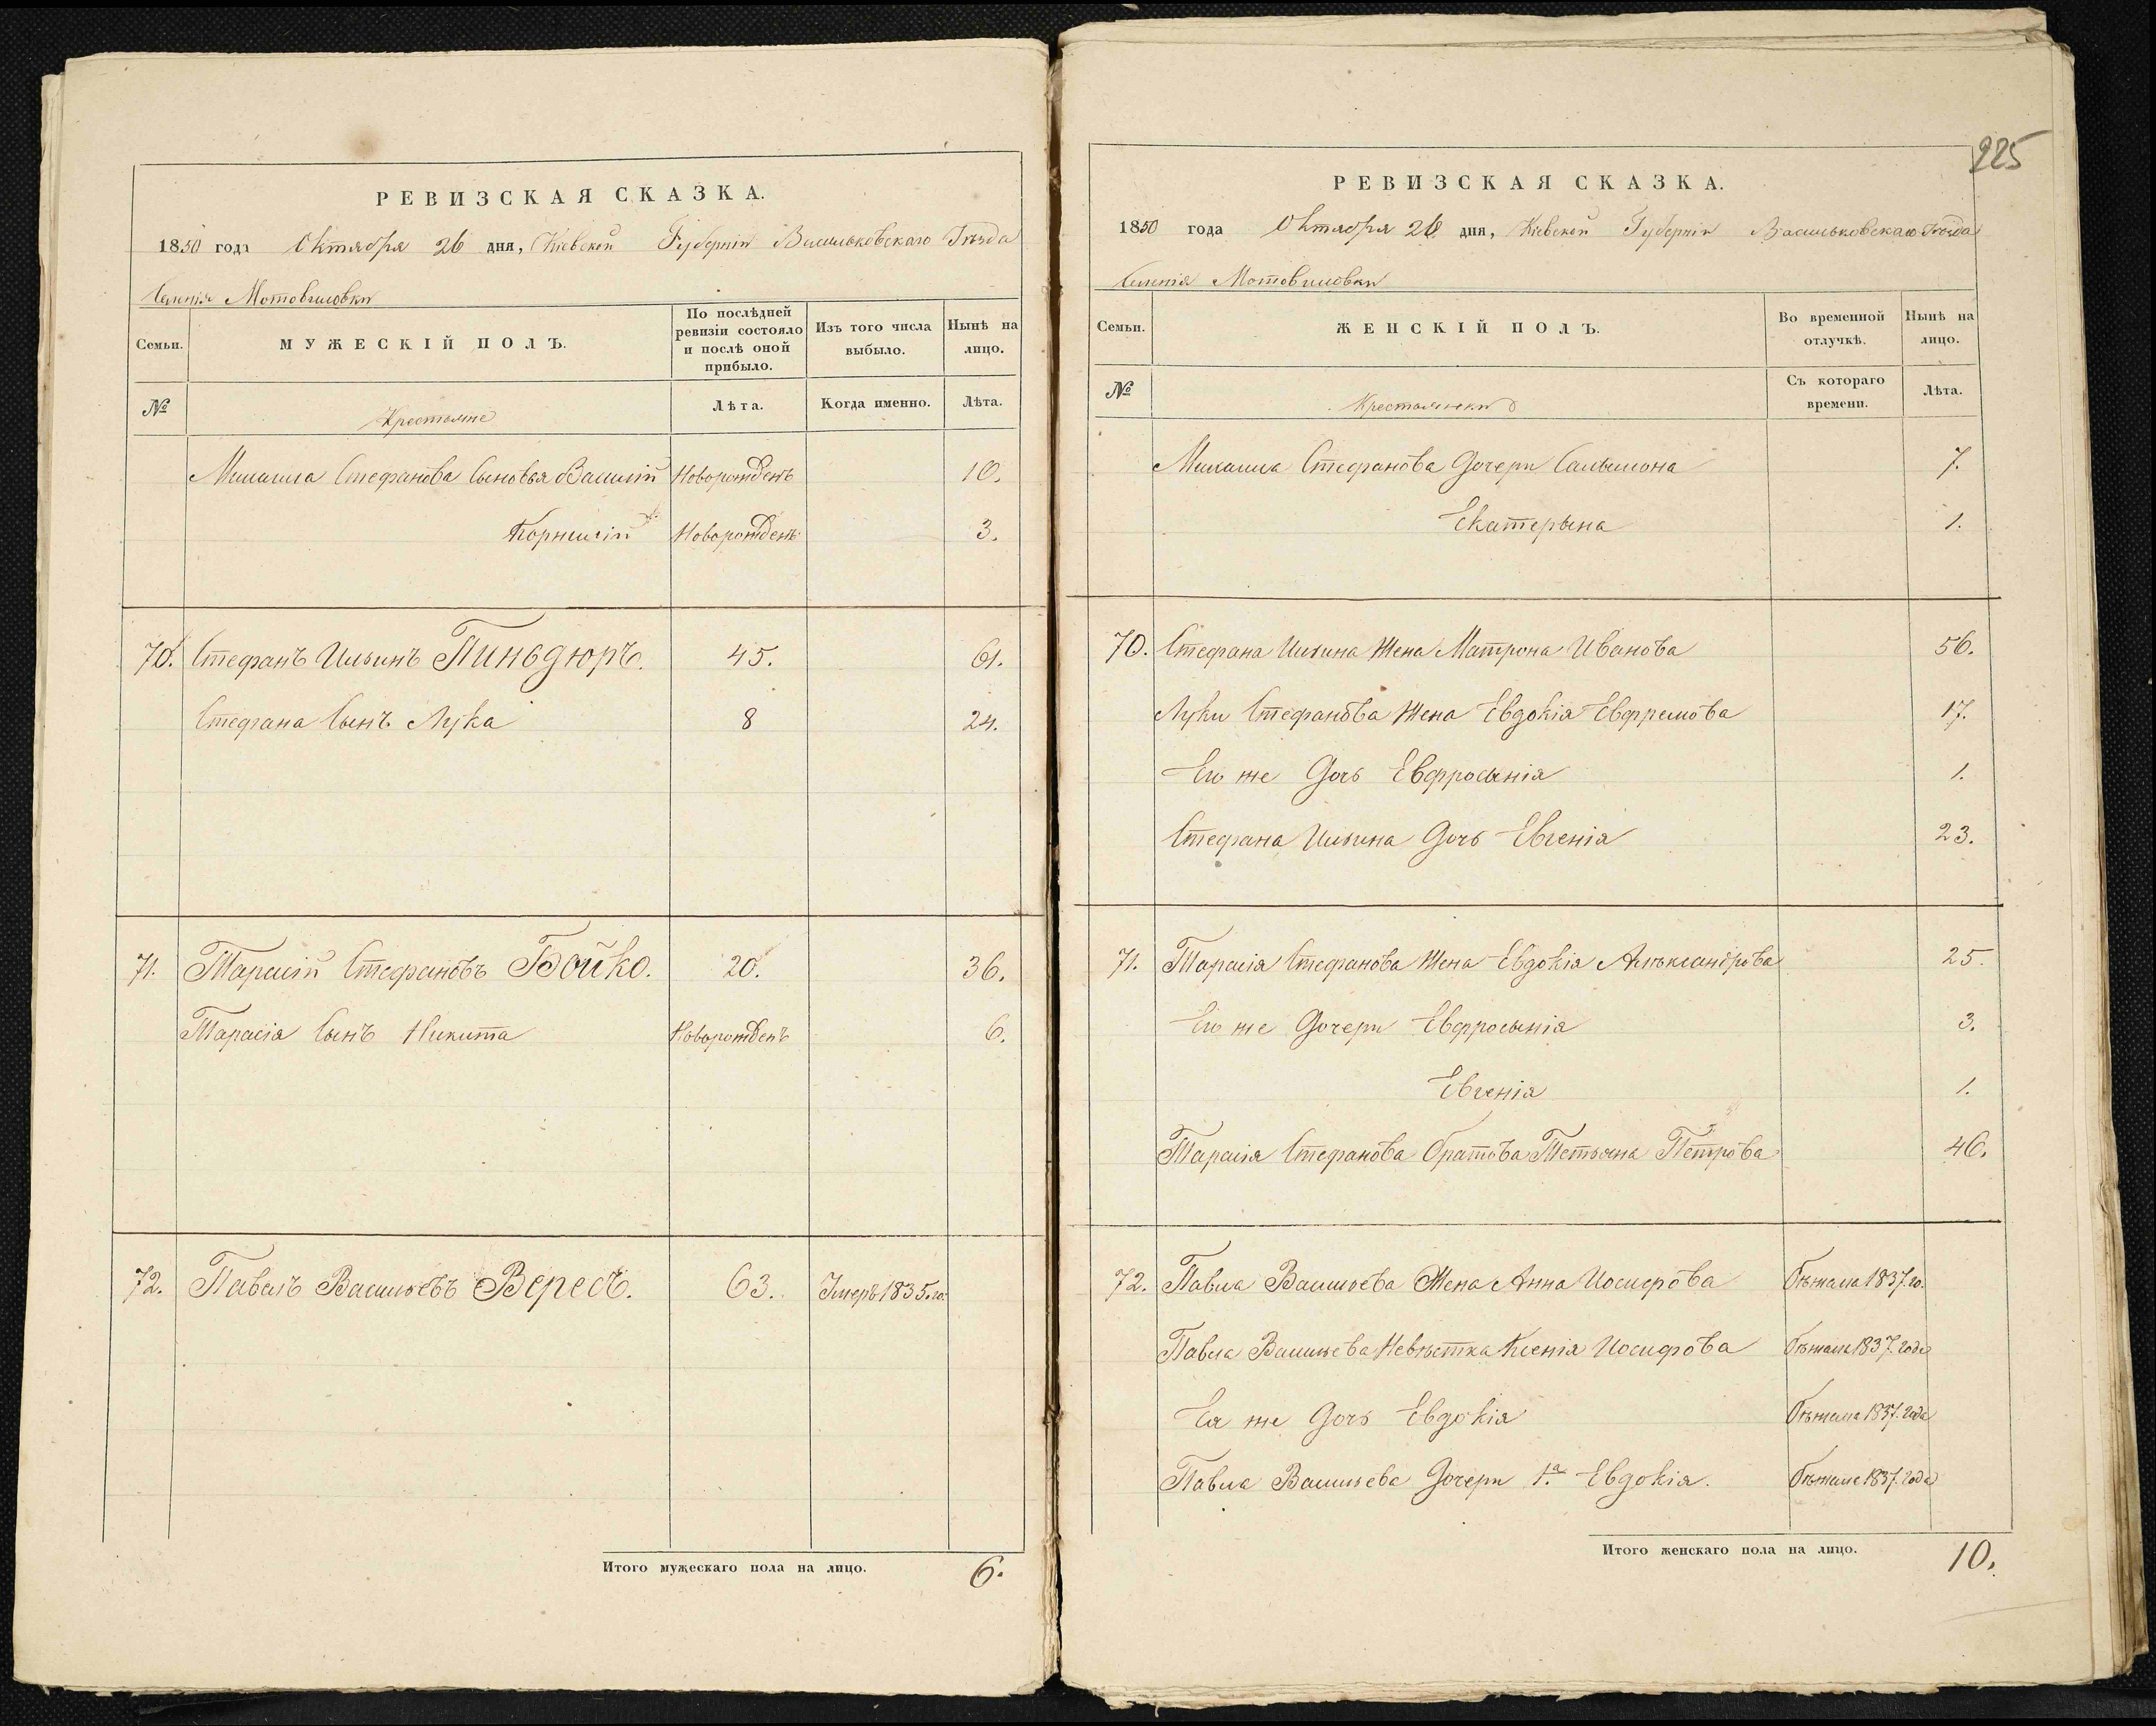 РЕВИЗСКАЯ СКАЗКА.
1850 года Октября 26 дня, Кіевской Губерніи Васильковскаго Уѣзда
Мотовиловки
Семьи.
МУЖЕСКІЙ ПОЛЪ.
По послѣдней ревизіи состояло и послѣ оной прибыло.
Изъ того числа выбыло.
Нынѣ на лицо.
№
Крестьяне
Лѣта.
Когда именно.
Лѣта.
Михаила Стефанова Сыновья Василій Новорожденъ 10.
Корнилій Новорожденъ 3.
70. Стефанъ Ильинъ Пиньдюръ. 45. 61.
Стефана Сынъ Лука 8 24.
71. Тарасій Стефановъ Бойко. 20. 36.
Тарасія Сынъ Никита Новорожденъ 6.
72. Павелъ Васильевъ Вересъ. 63. Умеръ 1835.го.
Итого мужескаго пола на лицо. 6.
225
РЕВИЗСКАЯ СКАЗКА.
1850 года Октября 26 дня, Кіевской Губерніи Васильковскаго Уѣзда
Мотовиловки
Семьи.
ЖЕНСКІЙ ПОЛЪ.
Во временной отлучкѣ.
Нынѣ на лицо.
№
Крестьянки
Съ котораго времени.
Лѣта.
Михаила Стефанова Дочери 7.
Екатерына 1.
70. Стефана Ильина Жена Матрона Иванова 56.
Луки Стефанова Жена Евдокія Евфремова 17.
Его же Дочь Евфросынія 1.
Стефана Ильина Дочь Евгенія 23.
71. Тарасія Стефанова Жена Евдокія Алѣксандрова 25.
Его же Дочери Евфросынія 3.
Евгенія 1.
Тарасія Стефанова братова Тетьяна Петрова 46.
72. Павла Васильева Жена Анна Иосифова бѣжала 1837.го.
Павла Васильева Невѣстка Ксенія Иосифова бѣжала 1837. года
Ея же Дочь Евдокія бѣжала 1837. года
Павла Васильева Дочери 1.а Евдокія. бѣжала 1837. года
Итого женскаго пола на лицо. 10.